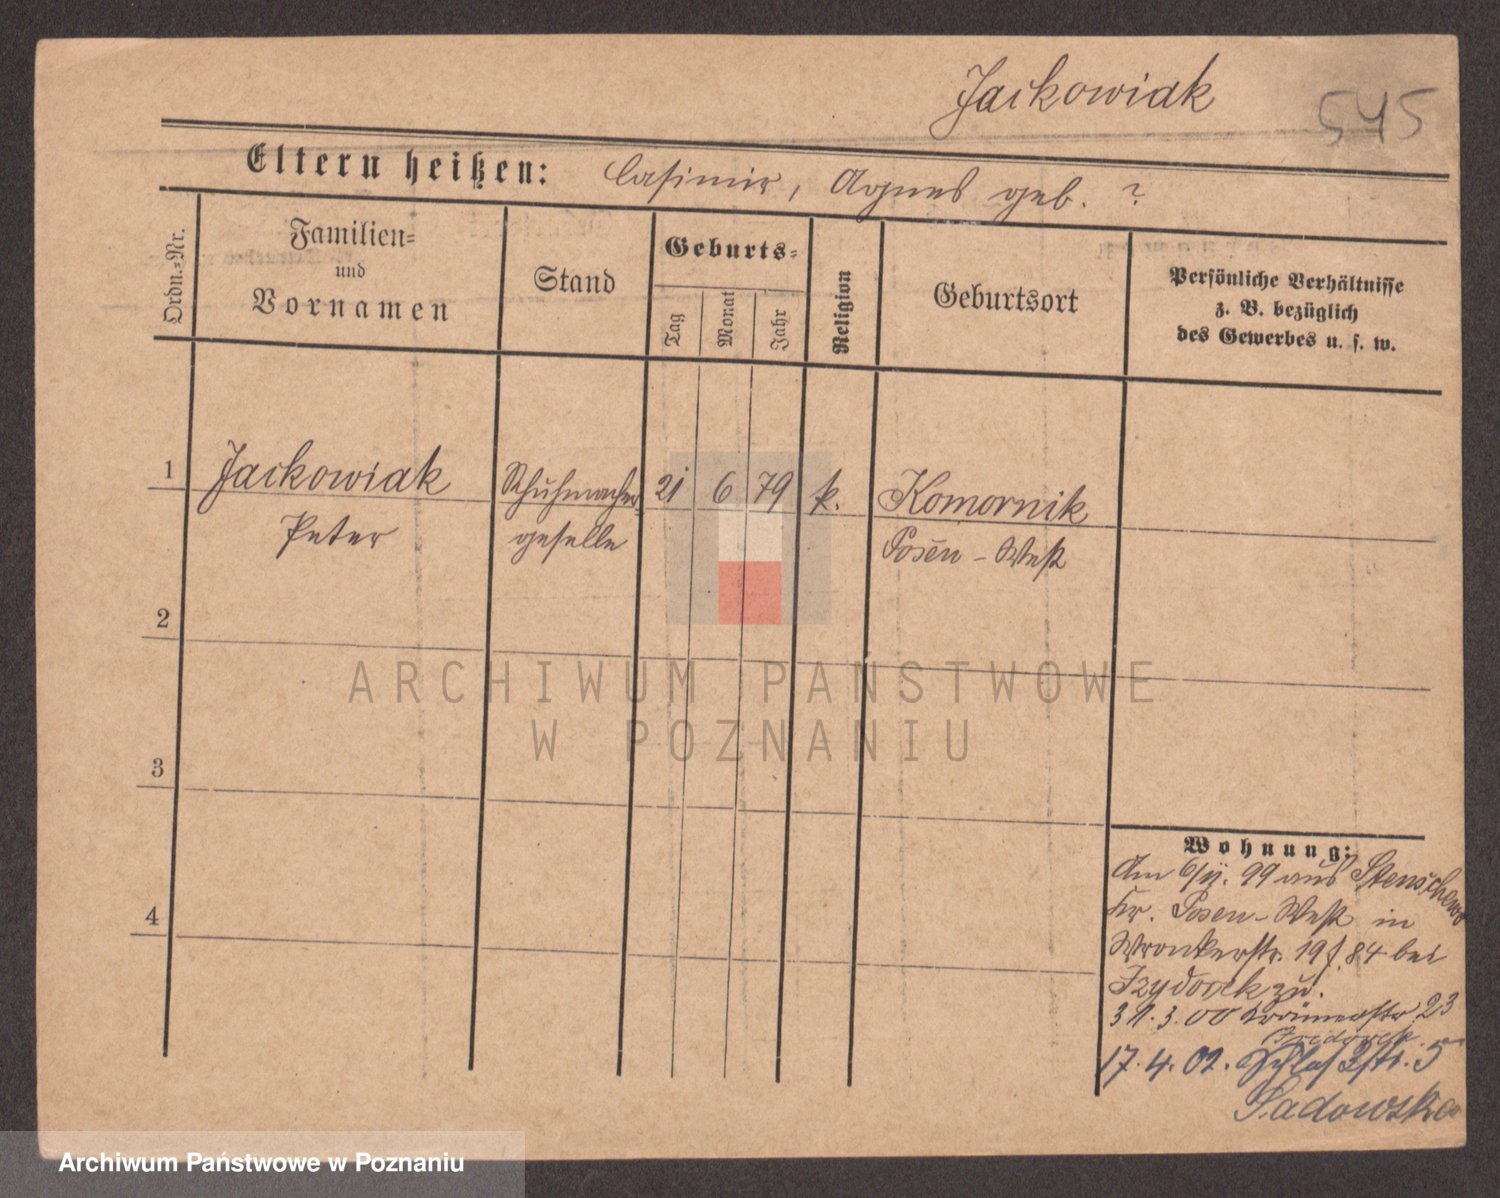 Jackowiak
545
Eltern heißen: Casimir, Agnes geb. ?
Ordn.=Nr.
Familien=
und
Vornamen
Stand
Geburts=
Tag
Monat
Jahr
Religion
Geburtsort
Persönliche Verhältnisse
z. B. bezüglich
des Gewerbes u. s. w.
1 Jackowiak Schuhmacher 21 6 79 k. Komornik
Peter geselle Posen - West
2
3
4
ARCHIWUM PAŃSTWOWE
W POZNANIU
Wohnung:
Am 6/ 99 aus Stenschewo
Kr. Posen-West in
Wronkerstr. 19 84 bei
Izydorek zu.
31.3.00 Krämerstr 23
Izidorek
17.4.02. Schloßstr. 5
Sadowska
Archiwum Państwowe w Poznaniu